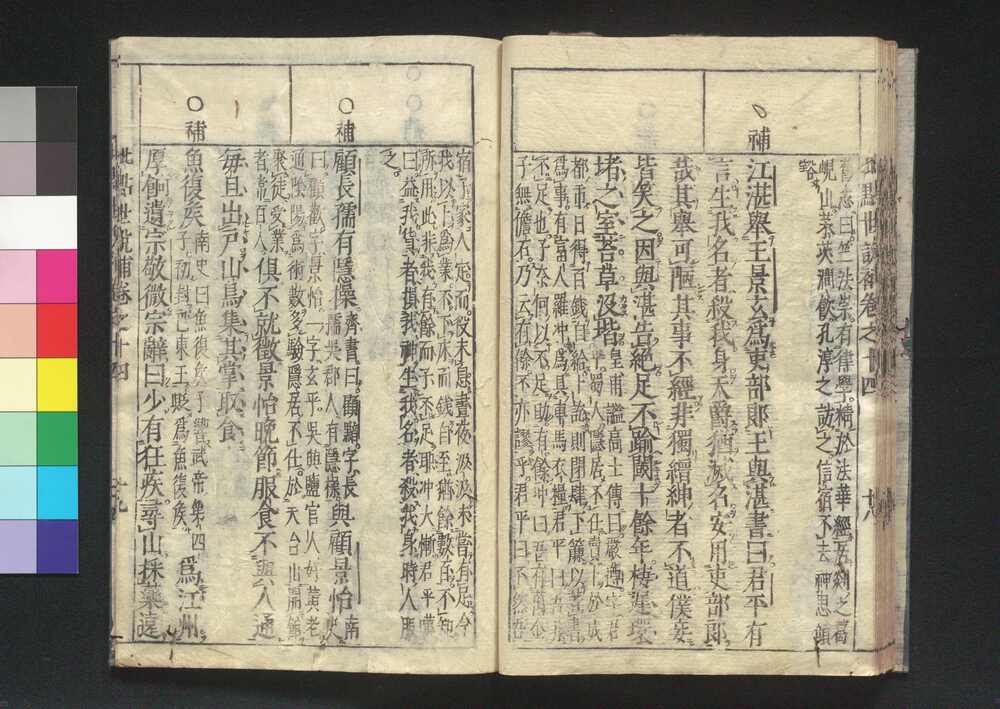 世說補卷之十四 十八
舊志曰竺法崇有律學精於法華經
峴山茱萸澗飲孔淳之訪之信宿不去神思
補
江湛舉王景玄爲吏部郎王與湛書曰君平有
言生我名者殺我身天爵猶滅名安用吏部郎
哉其舉可陋其事不經非獨搢紳者不道僕妾
皆笑之因與湛告絕足不踰閾十餘年棲遲環
堵之室苔草沒堦
皇甫謐高士傳曰嚴遵字君
平蜀人隱居不仕賣卜於成
都市日得百錢自給卜訖則閉肆下簾以著書
爲事有富人羅沖爲具車馬衣糧君平曰吾
不足也子奈何以不足助有餘沖曰吾有萬金
子無儋石乃云有餘不亦謬乎君平曰不然吾
宿子家人定而役未息晝夜汲汲未嘗有足今
我以卜爲業不下床而錢自至猶餘數百不知
所用此非我有餘而子不足耶沖大慚君平嘆
曰益我貨者損我神生我名者殺我身時人服
之
補
顧長孺有隱操
齊書曰顧黯字長
孺吳郡人有隱操
與顧景怡
南史
曰顧歡字景怡一字玄平吳興鹽官人好黃老
通陰陽爲術數多驗隱居不仕於天台山開館
聚徒受業
者常百人
俱不就徵景怡晚節服食不與人通
每旦出戶山鳥集其掌取食
補
魚復侯
南史曰魚復侯子響武帝第四
子初封巴東王貶爲魚復侯
爲江州
厚餉遺宗敬微宗辭曰少有狂疾尋山採藥遠
世說補卷之十四 十九